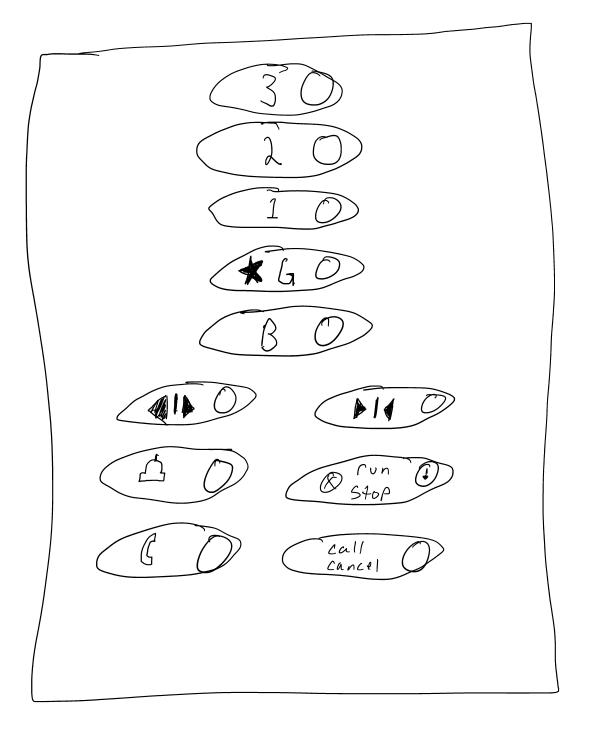 3
2
1
★ G
B
run
stop
call
cancel